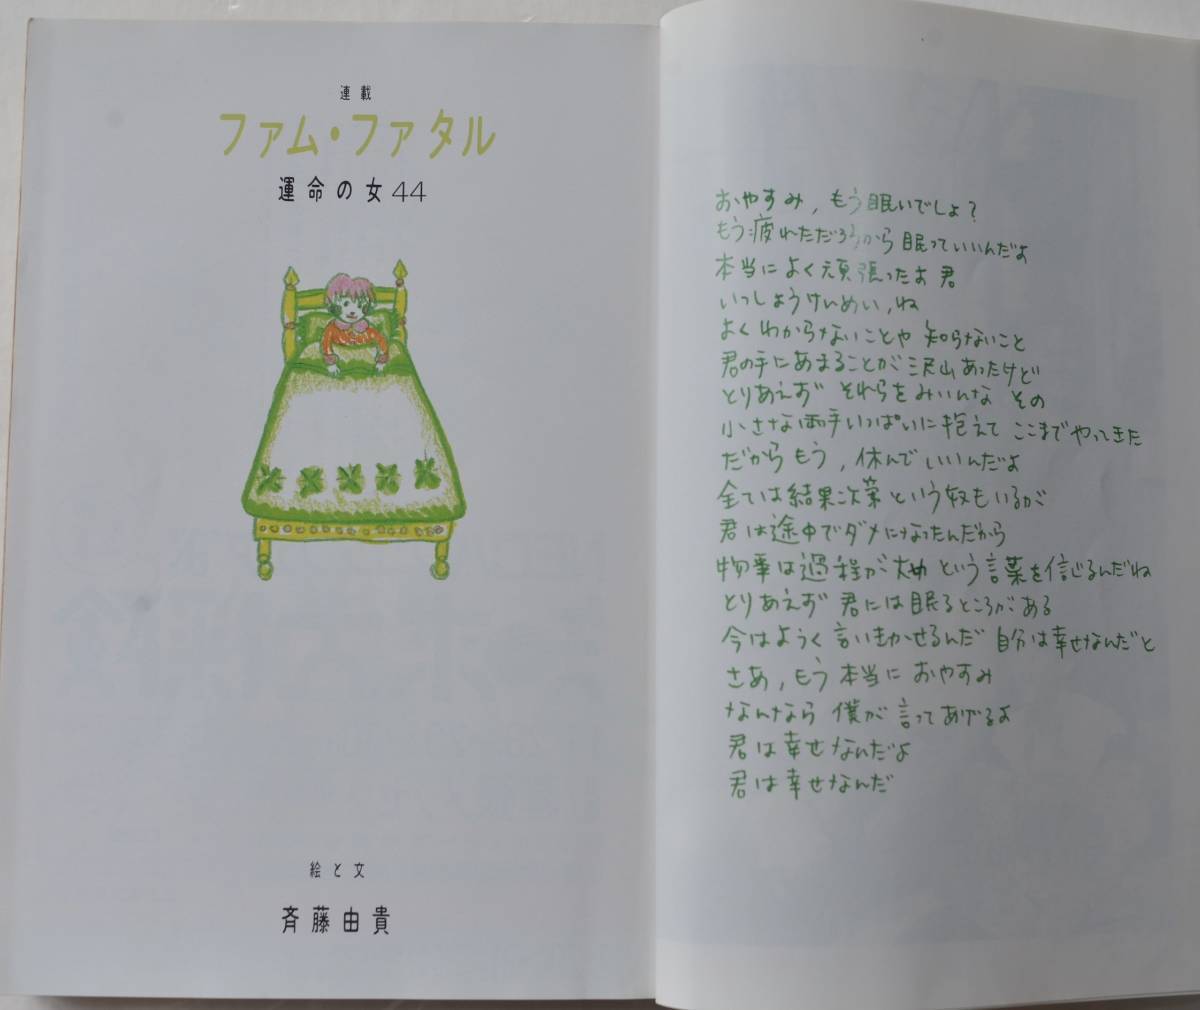 連載
ファム・ファタル
運命の女 44
絵と文
斉藤由貴
おやすみ，もう眠いでしょ？
もう疲れただろうから 眠っていいんだよ
本当に よく頑張ったよ 君
いっしょうけんめい，ね
よく わからないことや 知らないこと
君の手に あまることが 沢山 あったけど
とりあえず それらを みいんな その
小さな両手いっぱいに 抱えて ここまでやってきた
だから もう，休んで いいんだよ
全ては 結果次第 という奴もいるが
君は途中で ダメになったんだから
物事は 過程が大切 という言葉を信じるんだね
とりあえず 君には 眠るところがある
今は ようく 言いきかせるんだ 自分は幸せなんだと
さあ，もう 本当に おやすみ
なんなら 僕が 言ってあげるよ
君は 幸せなんだよ
君は 幸せなんだ